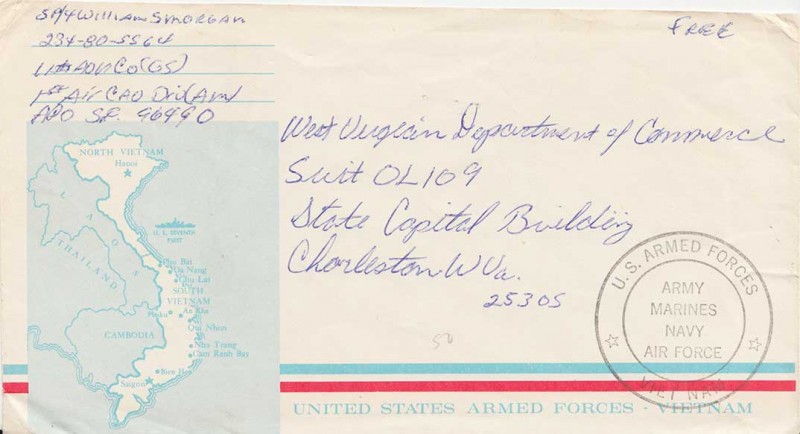 SP/4 William S Morgan
234-80-5564
11th ADN Co (GS)
1st Air CAV Div (Am)
APO S.F. 96490
Free
West Virginia Department of Commerce
Suit OL109
State Capital Building
Charleston W Va.
25305
50
NORTH VIETNAM
Hanoi
LAOS
THAILAND
U. S. SEVENTH
FLEET
Phu Bai
Da Nang
Chu Lai
SOUTH
VIETNAM
Pleiku
An Khe
Qui Nhon
CAMBODIA
Nha Trang
Cam Ranh Bay
Bien Hoa
Saigon
U.S. ARMED FORCES
ARMY
MARINES
NAVY
AIR FORCE
VIET NAM
UNITED STATES ARMED FORCES - VIETNAM